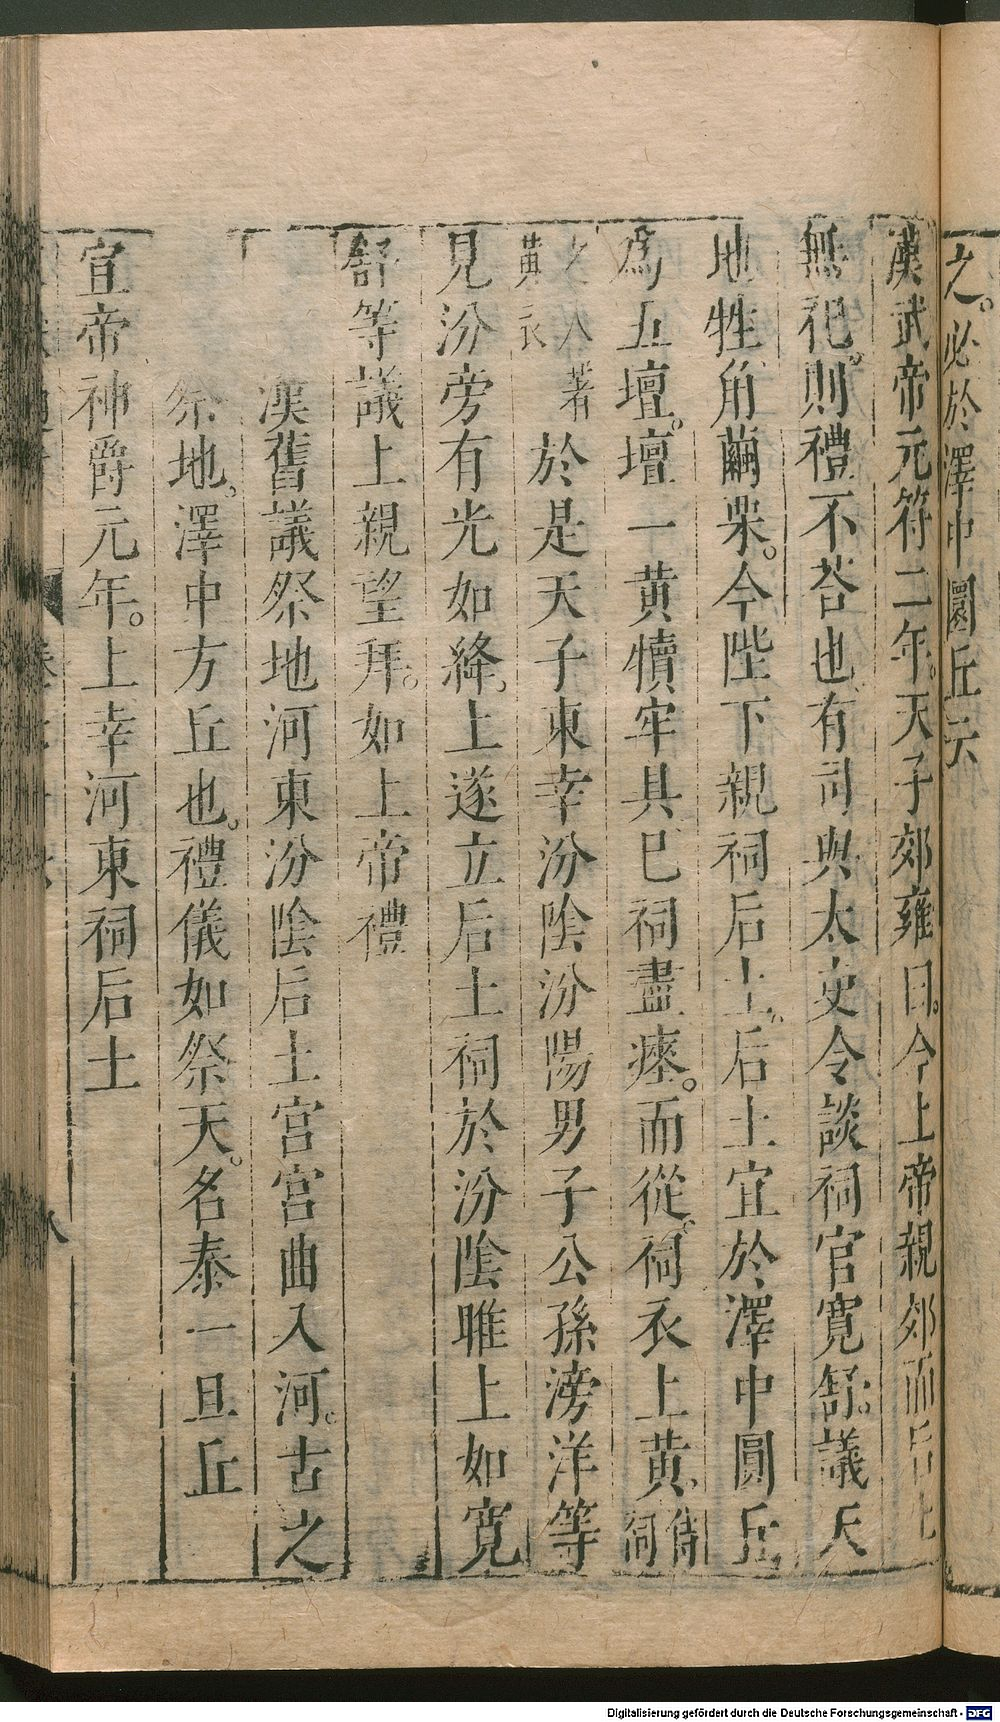 之。必於澤中圜丘云
漢武帝元符二年。天子郊雍曰。今上帝親郊而后土
無祀。則禮不荅也。有司與太史令談祠官寬舒。議天
地牲角繭栗。今陛下親祠后土。后土宜於澤中圓丘
為五壇。壇一黃犢牢具巳祠盡瘞。而從祠衣上黃。侍祠
之人著黃衣於是天子東幸汾陰汾陽男子公孫滂洋等
見汾旁有光如絳。上遂立后土祠於汾陰脽上如寬
舒等議上親望拜。如上帝禮
漢舊議祭地河東汾陰后土宮宮曲入河。古之
祭地。澤中方丘也。禮儀如祭天。名泰一旦丘
宣帝神爵元年。上幸河東祠后土
八
Digitalisierung gefördert durch die Deutsche Forschungsgemeinschaft - DFG